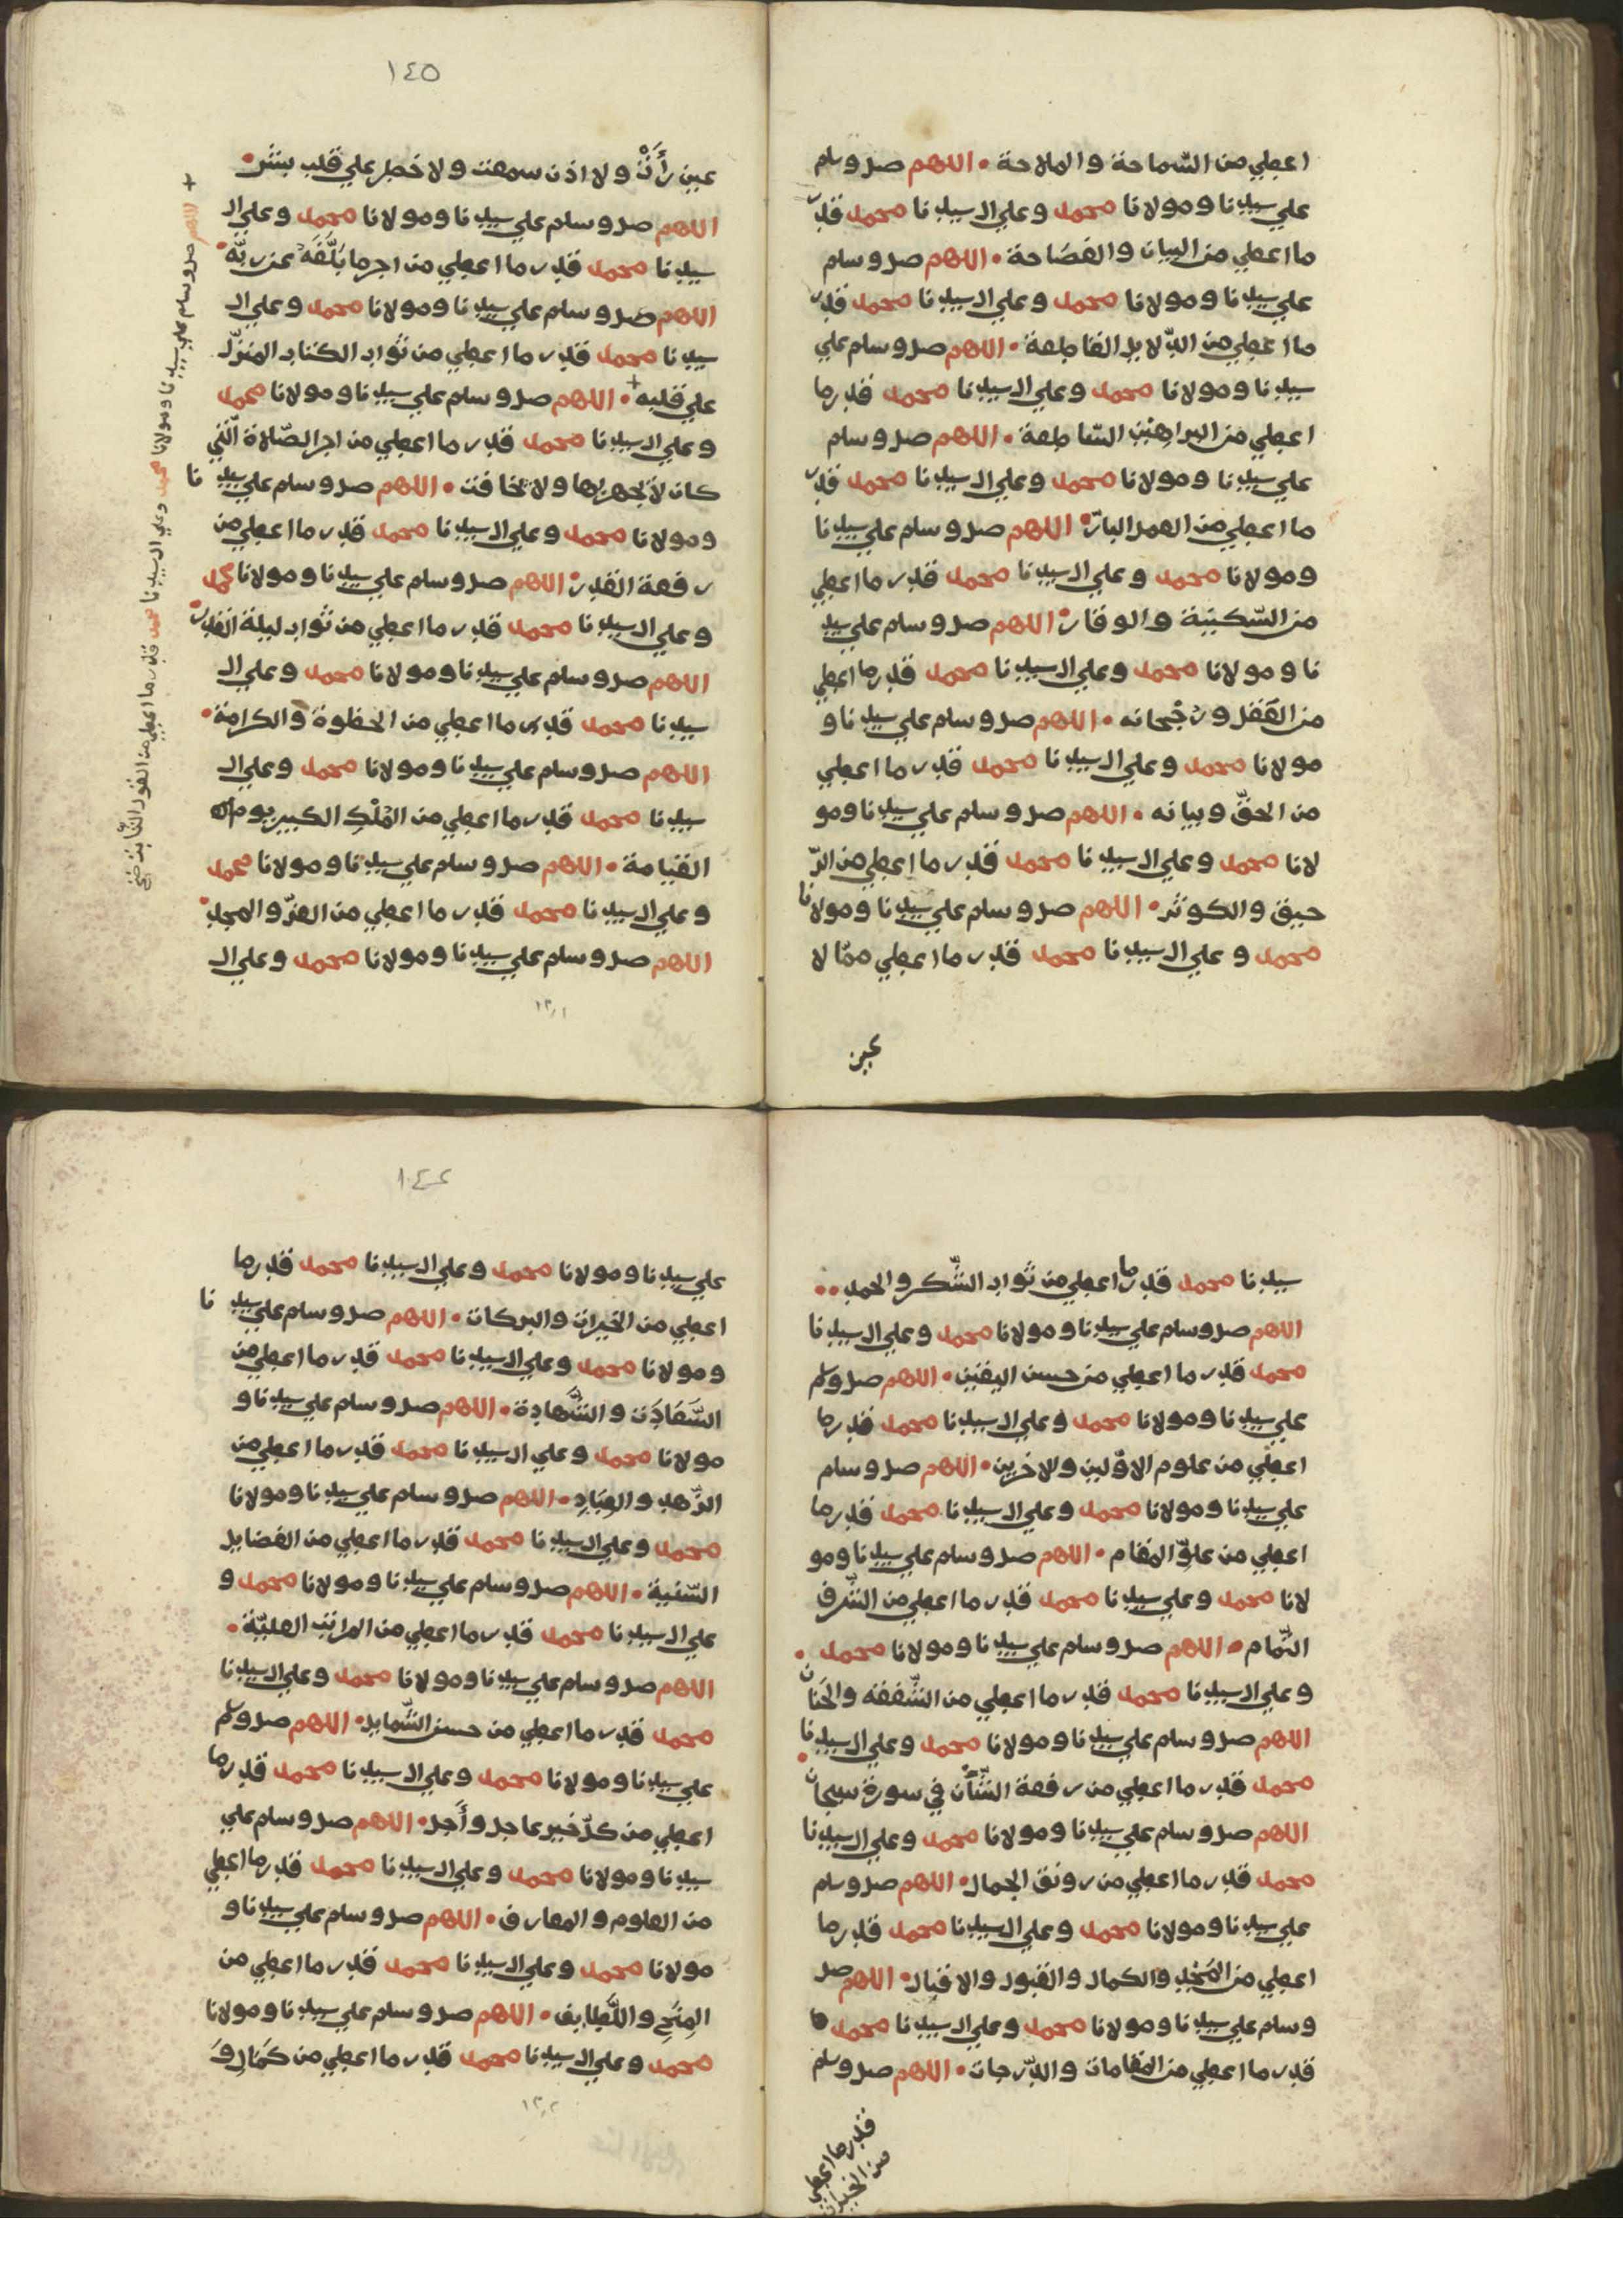 اعطي من السّماحة والملاحة • اللهم صل وسلم
علي سيدنا ومولانا محمد وعلي ال سيدنا محمد قدر
ما اعطي من البيان والفصَاحة • اللهم صل وسلم
علي سيدنا ومولانا محمد وعلي ال سيدنا محمد قدر
ما اعطي من الدّلايل القاطعة • اللهم صل وسلم علي
سيدنا ومولانا محمد وعلي ال سيدنا محمد قدر ما
اعطي من البراهين السّاطعة • اللهم صل وسلم
علي سيدنا ومولانا محمد وعلي ال سيدنا محمد قدر
ما اعطي من العمل البارّ • اللهم صل وسلم علي سيدنا
ومولانا محمد وعلي ال سيدنا محمد قدر ما اعطي
من السّكينة والوقار • اللهم صل وسلم علي سيد
نا ومولانا محمد وعلي ال سيدنا محمد قدر ما اعطي
من العَقل ورجْحانه • اللهم صل وسلم علي سيدنا و
مولانا محمد وعلي ال سيدنا محمد قدر ما اعطي
من الحقّ وبيانه • اللهم صل وسلم علي سيدنا ومو
لانا محمد وعلي ال سيدنا محمد قدر ما اعطي من الرّ
حيق والكوثر • اللهم صل وسلم علي سيدنا ومولانا
محمد وعلي ال سيدنا محمد قدر ما اعطي ممّا لا
عين
١٤٥
عين رأَتْ ولا اذن سمعت ولا خطر علي قلب بشر •
اللهم صل وسلم علي سيدنا ومولانا محمد وعلي ال
سيدنا محمد قدر ما اعطي من اجر ما بَلَّغَهُ عن ربّه •
اللهم صل وسلم علي سيدنا ومولانا محمد وعلي ال
سيدنا محمد قدر ما اعطي من ثواب الكتاب المنزّل
علي قلبه + • اللهم صل وسلم علي سيدنا ومولانا محمد
وعلي ال سيدنا محمد قدر ما اعطي من اجر الصّلاة الّتي
كان لا يجهر بها ولا يخافت • اللهم صل وسلم علي سيدنا
ومولانا محمد وعلي ال سيدنا محمد قدر ما اعطي من
رفعة القدر • اللهم صل وسلم علي سيدنا ومولانا محمد
وعلي ال سيدنا محمد قدر ما اعطي من ثواب ليلة القدر •
اللهم صل وسلم علي سيدنا ومولانا محمد وعلي ال
سيدنا محمد قدر ما اعطي من الحظوة والكرامة •
اللهم صل وسلم علي سيدنا ومولانا محمد وعلي ال
سيدنا محمد قدر ما اعطي من المُلْكِ الكبير يوم
القيامة • اللهم صل وسلم علي سيدنا ومولانا محمد
وعلي ال سيدنا محمد قدر ما اعطي من العزّ والمجد •
اللهم صل وسلم علي سيدنا ومولانا محمد وعلي ال
+ اللهم صل وسلم علي سيدنا ومولانا محمد وعلي ال سيدنا محمد قدر ما اعطي من القول الثّابت
سيدنا محمد قدر ما اعطي من ثواب الشّكر والحمد ••
اللهم صل وسلم علي سيدنا ومولانا محمد وعلي ال سيدنا
محمد قدر ما اعطي من حسن اليقين • اللهم صل وسلم
علي سيدنا ومولانا محمد وعلي ال سيدنا محمد قدر ما
اعطي من علوم الاوّلين والاخرين • اللهم صل وسلم
علي سيدنا ومولانا محمد وعلي ال سيدنا محمد قدر ما
اعطي من علوّ المقام • اللهم صل وسلم علي سيدنا ومو
لانا محمد وعلي سيدنا محمد قدر ما اعطي من الشّرف
التّمام • اللهم صل وسلم علي سيدنا ومولانا محمد •
وعلي ال سيدنا محمد قدر ما اعطي من الشّفقه والحَنان
اللهم صل وسلم علي سيدنا ومولانا محمد وعلي ال سيدنا
محمد قدر ما اعطي من رفعة الشّأن في سورة سبحان •
اللهم صل وسلم علي سيدنا ومولانا محمد وعلي ال سيدنا
محمد قدر ما اعطي من رونق الجمال • اللهم صل وسلم
علي سيدنا ومولانا محمد وعلي ال سيدنا محمد قدر ما
اعطي من المَجْدِ والكمال والقبول والاقبال • اللهم صل
وسلم علي سيدنا ومولانا محمد وعلي ال سيدنا محمد
قدر ما اعطي من المقامات والدّرجات • اللهم صل وسلم
قدر ما اعطي
من الخيرات
علي سيدنا ومولانا محمد وعلي ال سيدنا محمد قدر ما
اعطي من الخيرات والبركات • اللهم صل وسلم علي سيدنا
ومولانا محمد وعلي ال سيدنا محمد قدر ما اعطي من
السَّعَادَت والشَّهادة • اللهم صل وسلم علي سيدنا و
مولانا محمد وعلي ال سيدنا محمد قدر ما اعطي من
الزّهد والعِبَادِ • اللهم صل وسلم علي سيدنا ومولانا
محمد وعلي ال سيدنا محمد قدر ما اعطي من الفضايل
السّنية • اللهم صل وسلم علي سيدنا ومولانا محمد و
علي ال سيدنا محمد قدر ما اعطي من المراتب العليّة •
اللهم صل وسلم علي سيدنا ومولانا محمد وعلي ال سيدنا
محمد قدر ما اعطي من حسن الشّمايل • اللهم صل وسلم
علي سيدنا ومولانا محمد وعلي ال سيدنا محمد قدر ما
اعطي من كلّ خير عاجل وأَجل • اللهم صل وسلم علي
سيدنا ومولانا محمد وعلي ال سيدنا محمد قدر ما اعطي
من العلوم والمعارف • اللهم صل وسلم علي سيدنا و
مولانا محمد وعلي ال سيدنا محمد قدر ما اعطي من
المِنَحِ واللَّطايف • اللهم صل وسلم علي سيدنا ومولانا
محمد وعلي ال سيدنا محمد قدر ما اعطي من كمَالِ وَ